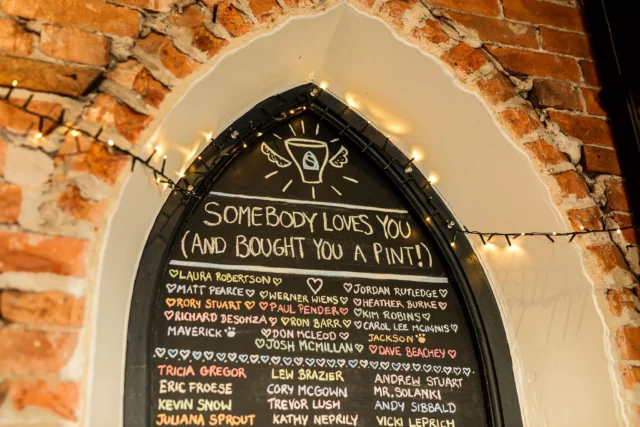 SOMEBODY LOVES YOU
(AND BOUGHT YOU A PINT!)
♡LAURA ROBERTSON♡
♡MATT PEARCE♡ ♡WERNER WIENS♡ ♡JORDAN RUTLEDGE♡
♡RORY STUART♡ ♡PAUL PENDER♡ ♡HEATHER BURKE♡
♡RICHARD DESONZA♡ ♡RON BARR♡ ♡KIM ROBINS♡
MAVERICK ♡DON MCLEOD♡ ♡CAROL LEE MCINNIS♡
♡JOSH MCMILLAN♡ JACKSON
♡DAVE BEACHEY♡
TRICIA GREGOR LEW BRAZIER ANDREW STUART
ERIC FROESE CORY MCGOWN MR. SOLANKI
KEVIN SNOW TREVOR LUSH ANDY SIBBALD
JULIANA SPROUT KATHY NEPRILY VICKI LEPRICH